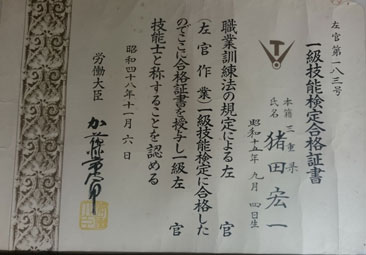 左官第一八三号
一級技能検定合格証書
本籍 三重県
氏名 猪田宏一
昭和十五年 九月 四日生
職業訓練法の規定による左官
(左官作業)一級技能検定に合格した
のでここに合格証書を授与し一級左官
技能士と称することを認める
昭和四十八年十一月六日
労働大臣